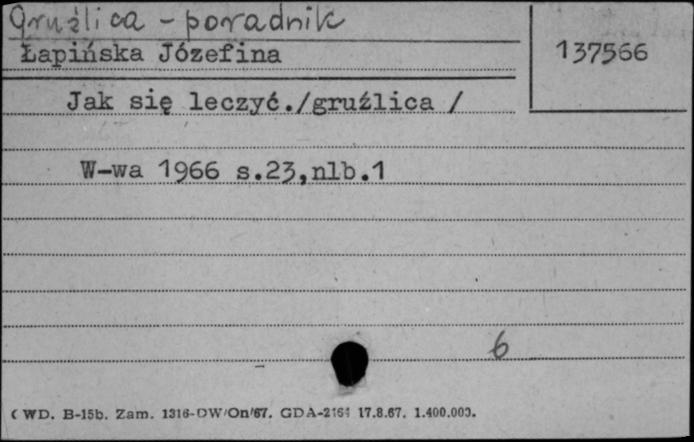 Gruźlica - poradnik
Łapińska Józefina
137566
Jak się leczyć./gruźlica /
W-wa 1966 s.23,nlb.1
6
( WD. B-15b. Zam. 1316-DW/On/67. GDA-2164 17.8.67. 1.400.000.